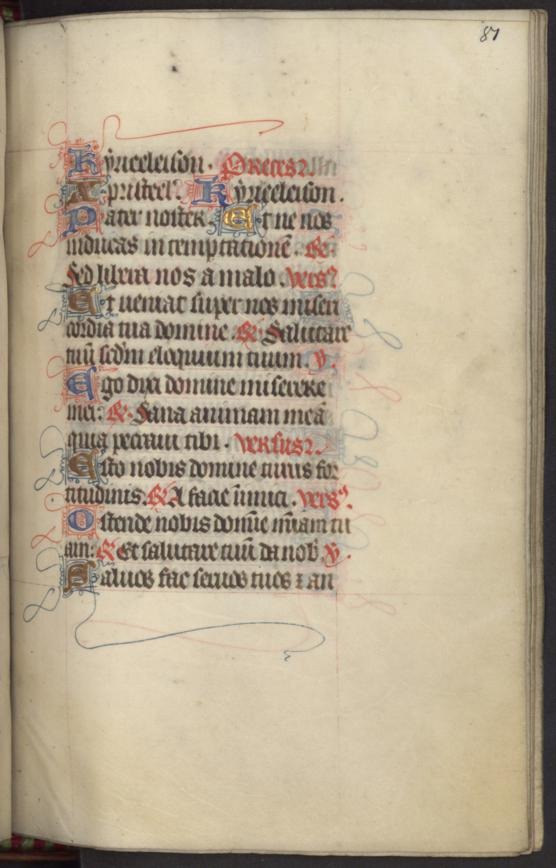 87
Kyrieeleison. Preces.
Xpristeel. Kyrieeleison.
Pater noster. Et ne nos
inducas in temptatione. R
Sed libera nos a malo. vers
Et ueniat super nos miseri
cordia tua domine. R Salutare
tuū scdm eloquium tuum. V.
Ego dixi domine miserere
mei: R. Sana animam meā
quia peccaui tibi. Versus.
Esto nobis domine turris for
titudinis. R A facie inimici. vers.
Ostende nobis domie miam tu
am: R Et salutare tuū da nob V.
Saluos fac seruos tuos ⁊ an